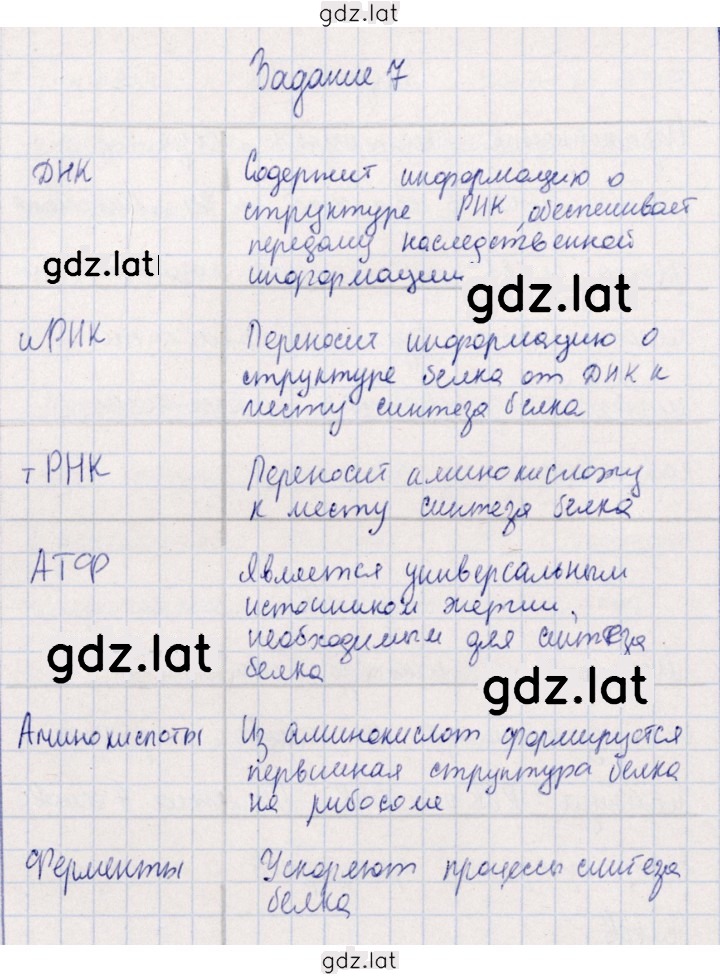 gdz.lat
Задание 7
ДНК
Содержит информацию о
структуре РНК, обеспечивает
передачу наследственной
информации
gdz.lat
gdz.lat
иРНК
Переносит информацию о
структуре белка от ДНК к
месту синтеза белка
тРНК
Переносит аминокислоту
к месту синтеза белка
АТФ
Является универсальным
источником энергии,
необходимым для синтеза
белка
gdz.lat
gdz.lat
Аминокислоты
Из аминокислот формируется
первичная структура белка
на рибосоме
Ферменты
Ускоряют процессы синтеза
белка
gdz.lat